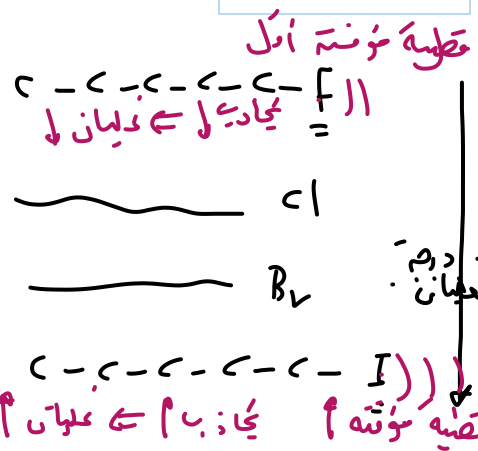 قطبية مؤقتة أول
C – C – C – C – C – F
تجاذب ↓ ⇐ غليان ↓
Cl
Br
درجة
غليان
C – C – C – C – C – I
قطبية مؤقتة ↑ تجاذب ↑ ⇐ غليان ↑